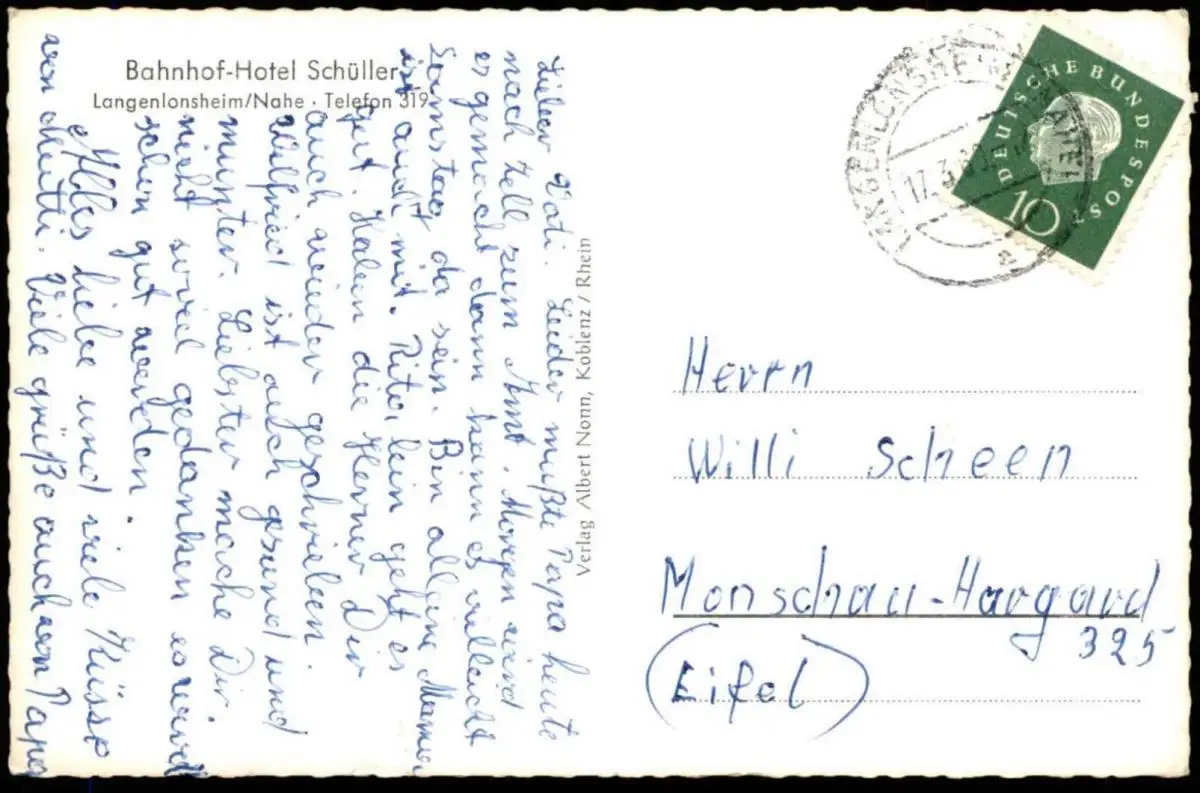 Bahnhof-Hotel Schüller
Langenlonsheim/Nahe · Telefon 319
Lieber Vati. Leider mußte Papa heute
nach Zell zum Amt. Morgen wird
es gemacht dann kann es villeicht
Samstag da sein. Bin alleine Mamie
ist auch mit. Rita, lein geht es
gut. Haben die Herner Dir
auch wieder geschrieben.
Wilfried ist auch gesund und
munter. Liebster mache Dir
nicht soviel gedanken es wird
schon gut werden.
Alles liebe und viele Küsse
von Mutti. Viele grüße auch von Papa
Verlag Albert Nonn, Koblenz / Rhein
LANGENLONSHEIM (NAHE)
17.3.60
a
DEUTSCHE BUNDESPOST
10
Herrn
Willi Scheen
Monschau-Hargard
325
(Eifel)